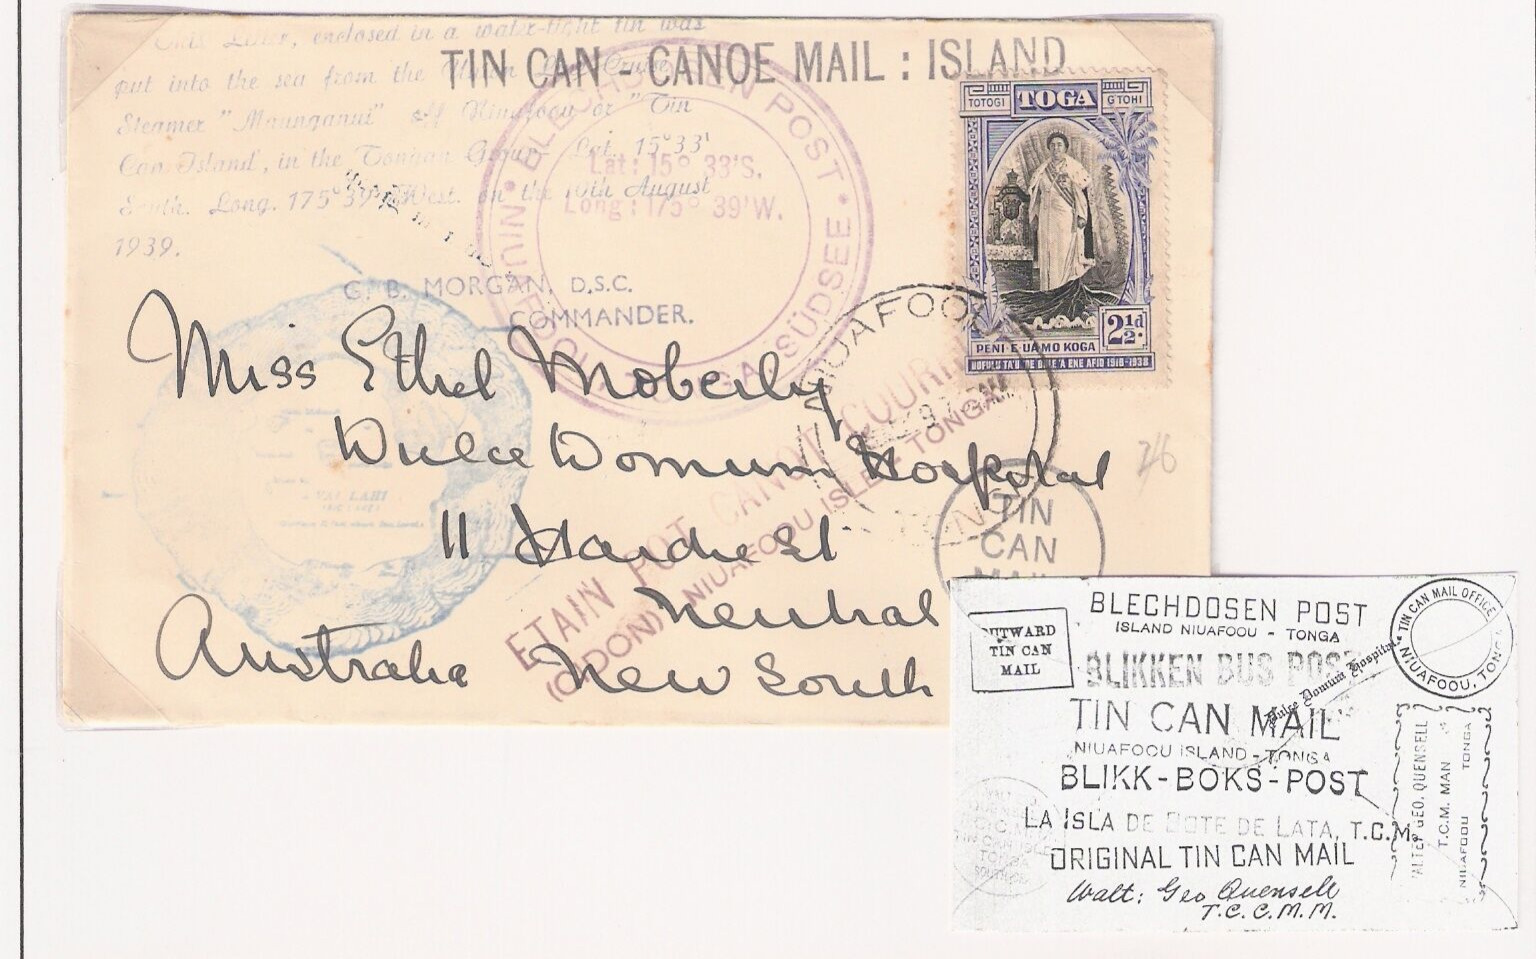 TIN CAN - CANOE MAIL : ISLAND
enclosed in a water-tight tin was
put into the sea from the Cruise
Steamer "Maunganui" off Niuafoou or "Tin
Can Island", in the Tongan Group - Lat. 15°33'
South. Long. 175°39' West. on the 10th August
1939.
C. B. MORGAN, D.S.C.
COMMANDER.
BLECHDOSEN POST
NIUAFOOU TONGA SÜDSEE
Lat: 15° 33'S.
Long: 175° 39'W.
TOTOGI TOGA G'TOHI
PENI E UA MO KOGA
2½d.
1918-1938
NIUAFOOU
TIN
CAN
MAIL
ETAIN POT CANOT COURI
NIUAFOOU ISLE - TONGA
VAI LAHI
Miss Ethel Moberly
Dulce Domum Hospital
11 Hardie St
Neutral
Australia New South
7/6
BLECHDOSEN POST
ISLAND NIUAFOOU - TONGA
OUTWARD
TIN CAN
MAIL
TIN CAN MAIL OFFICE
NIUAFOOU, TONGA
BLIKKEN BUS POST
Dulce Domum Hospital
TIN CAN MAIL
NIUAFOOU ISLAND - TONGA
BLIKK-BOKS-POST
LA ISLA DE BOTE DE LATA, T.C.M.
ORIGINAL TIN CAN MAIL
Walt: Geo Quensell
T.C.C.M.M.
WALTER GEO. QUENSELL
T.C.M. MAN
NIUAFOOU TONGA